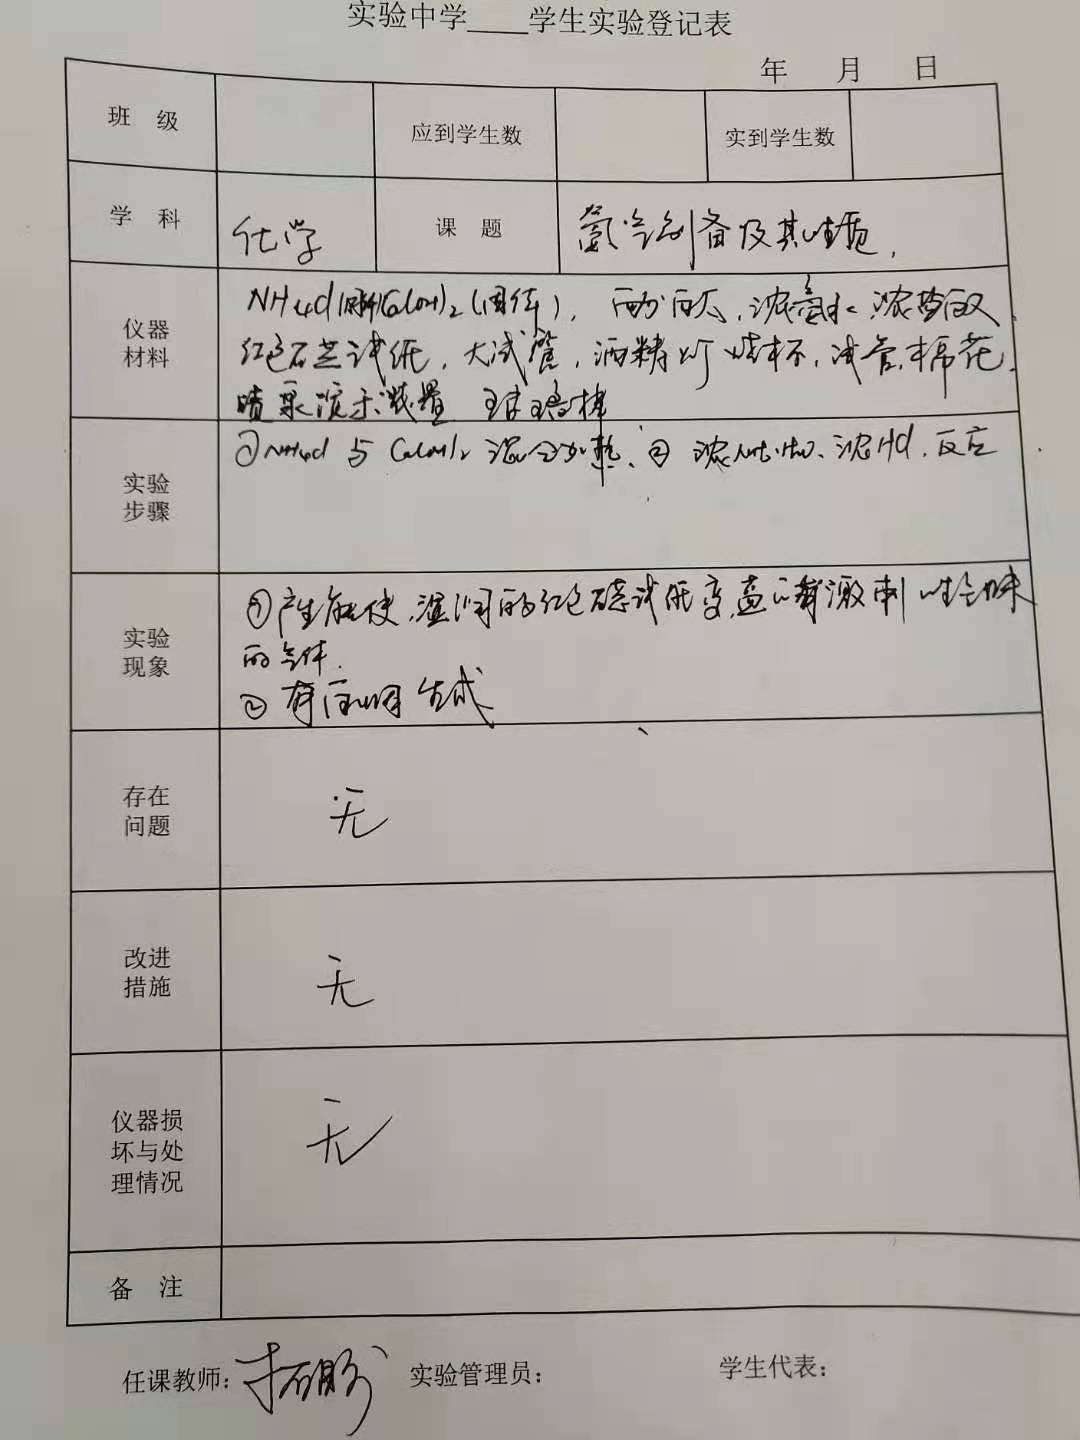 实验中学____学生实验登记表
年 月 日
班 级 应到学生数 实到学生数
学 科 化学 课 题 氨气制备及其性质.
仪器材料 NH4Cl Ca(OH)2(固体), 浓氨水 浓盐酸
红色石蕊试纸, 大试管, 酒精灯 烧杯, 试管, 棉花.
喷泉演示装置 玻璃棒
实验步骤 ①NH4Cl 与 Ca(OH)2 混合加热. ② 浓NH3·H2O、浓HCl. 反应
实验现象 ①产生能使湿润的红色石蕊试纸变蓝 有刺激性气味
的气体.
② 有白烟生成
存在问题 无
改进措施 无
仪器损坏与处理情况 无
备 注
任课教师: 实验管理员: 学生代表: